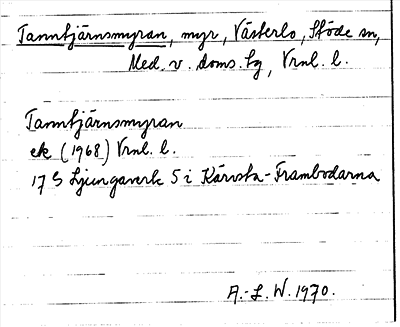 Tanntjärnsmyran, myr, Västerlo, Stöde sn,
Med. v. doms. tg, Vrnl. l.
Tanntjärnsmyran
ek (1968) Vrnl. l.
17 S Ljungaverk 5 i Kärvsta-Frambodarna
A.-L. W. 1970.